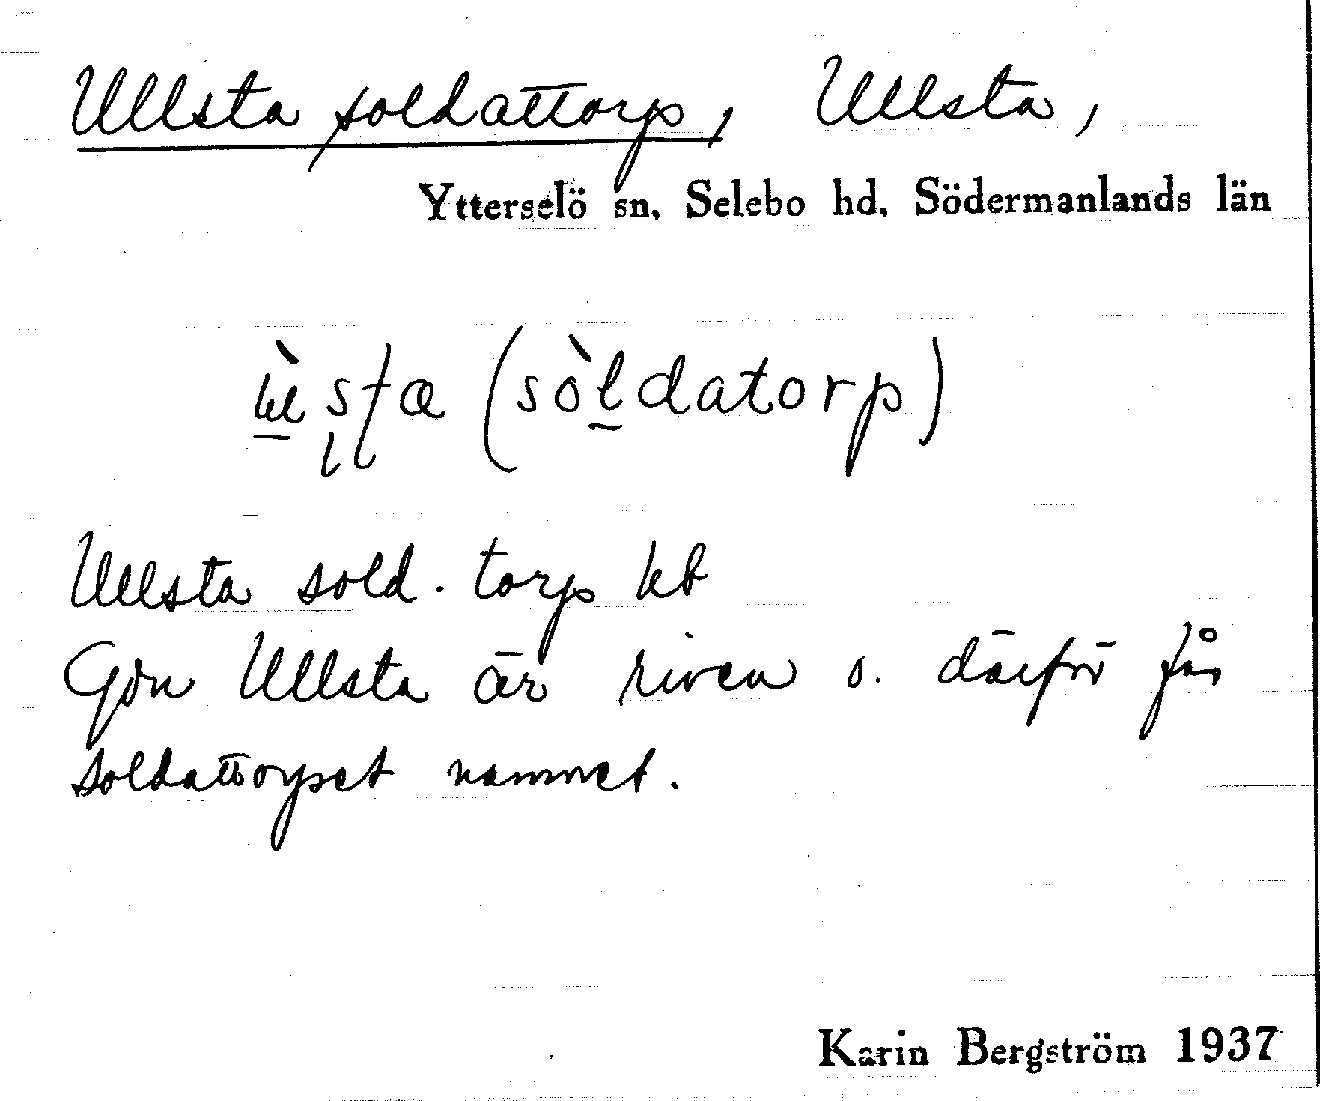 Ullsta soldattorp, Ullsta,
Ytterselö sn, Selebo hd, Södermanlands län
(sòldatorp)
Ullsta sold. torp kb
Gdn Ullsta är riven o. därför får
soldattorpet namnet.
Karin Bergström 1937